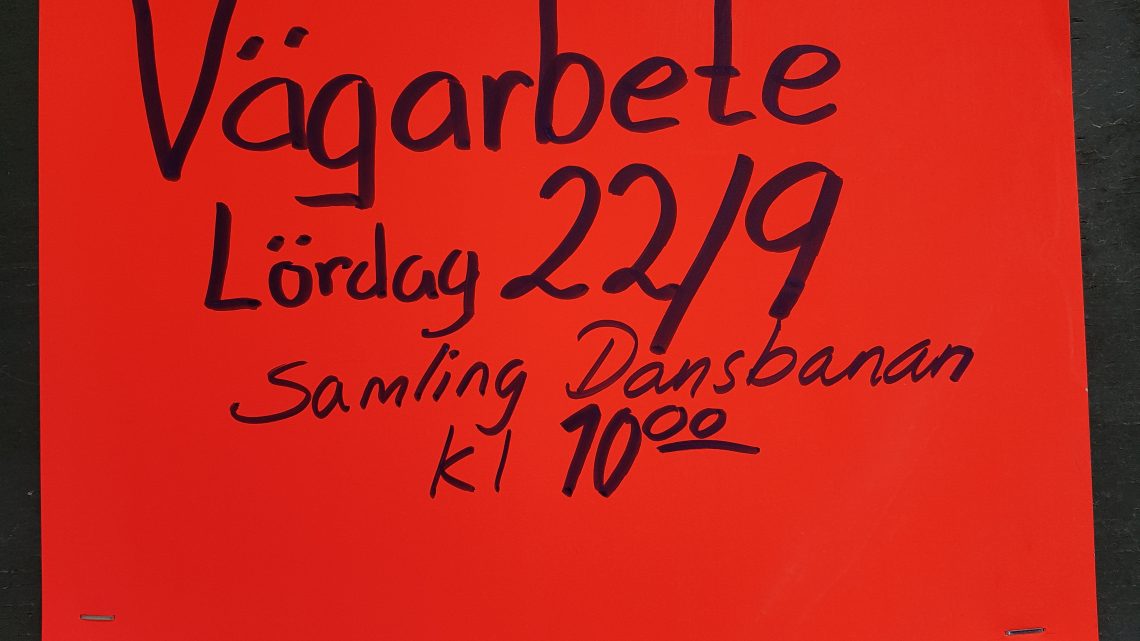 Vägarbete
Lördag 22/9
Samling Dansbanan
kl 10⁰⁰